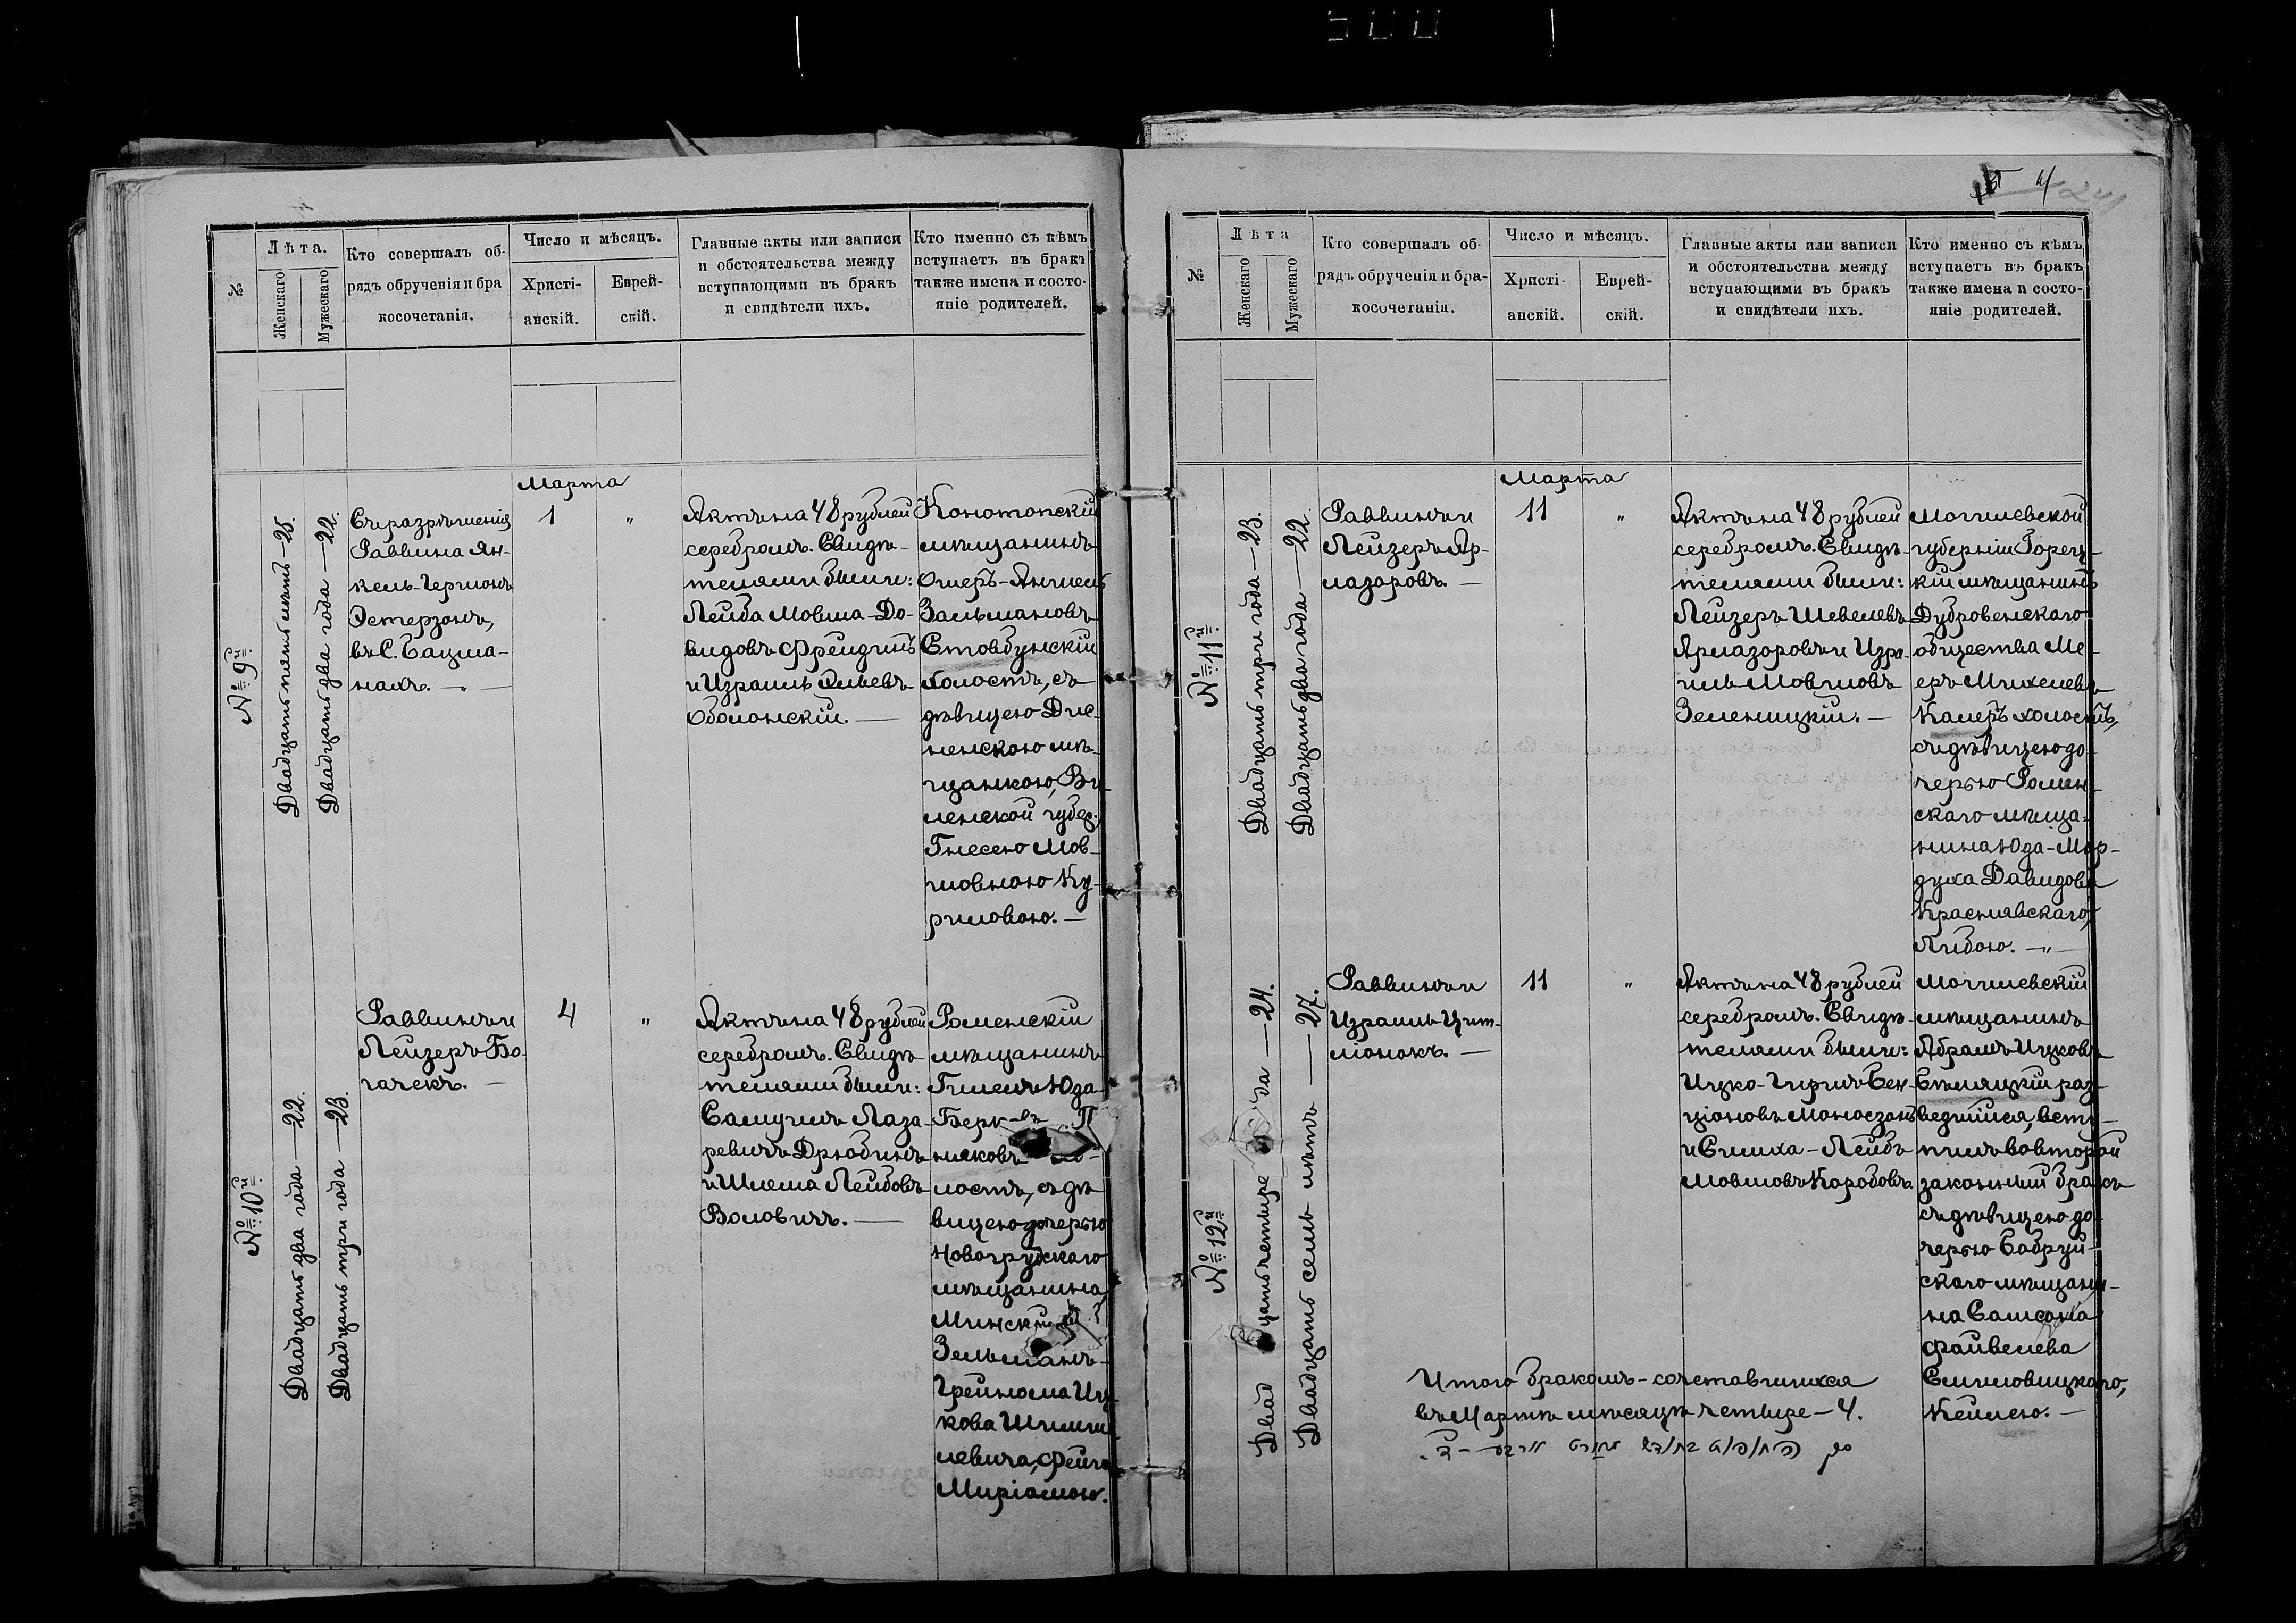 №
Лѣта.
Женскаго
Мужескаго
Кто совершалъ об-
рядъ обрученія и бра
косочетанія.
Число и мѣсяцъ.
Христі-
анскій.
Еврей-
скій.
Главные акты или записи
и обстоятельства между
вступающими въ бракъ
и свидѣтели ихъ.
Кто именно съ кѣмъ
вступаетъ въ бракъ
также имена и состо-
яніе родителей.
Марта
№ 9й.
Двадцать пять лѣтъ — 25.
Двадцать два года — 22.
Съ разрѣшенія
Раввина Ян-
кель-Гершонъ
Эстерзонъ,
въ С. Бацма-
нахъ. — „ —
1
„
Актъ на 48 рублей
серебромъ. Свидѣ-
телями были:
Лейба Мовша-До-
видовъ Фрейдинъ
и Израиль Эльевъ
Оболонскій. —
Конотопскій
мѣщанинъ
Ошеръ-Анчель
Зальмановъ
Стовбунскій
холостъ, съ
дѣвицею Дис-
ненскою мѣ-
щанкою, Ви
ленской губер.,
Гнесею Мов-
шовною Ку-
риловою. —
№ 10й.
Двадцать два года — 22.
Двадцать три года — 23.
Раввинъ и
Лейзеръ Бо-
гачекъ. —
4
„
Актъ на 48 рублей
серебромъ. Свидѣ
телями были:
Самуилъ Лаза-
ревичъ Дрюбинъ
и Шлема Лейбовъ
Воловичъ. —
Роменскій
мѣщанинъ
Гилель Юда-
Берк-въ П
няковъ
лостъ, съ дѣ
вицею дочерью
Новогрудскаго
мѣщанина,
Минск
Зельманъ-
Грейнома Иц-
кова Шмми
левича, Фейга
Миріамою.
№
Лѣта
Женскаго
Мужескаго
Кто совершалъ об-
рядъ обрученія и бра-
косочетанія.
Число и мѣсяцъ.
Христі-
анскій.
Еврей-
скій.
Главные акты или записи
и обстоятельства между
вступающими въ бракъ
и свидѣтели ихъ.
Кто именно съ кѣмъ
вступаетъ въ бракъ
также имена и состо-
яніе родителей.
Марта
№ 11й.
Двадцать три года — 23.
Двадцать два года — 22.
Раввинъ и
Лейзеръ Ар-
лазоровъ. —
11
„
Актъ на 48 рублей
серебромъ. Свидѣ-
телями были:
Лейзеръ Шевелевъ
Арлазоровъ и Изра-
иль Мовшовъ
Зеленицкій. —
Могилевской
губерніи Горец-
кій мѣщанинъ
Дубровенскаго
общества Ме-
еръ Михелевъ
Калеръ холостъ,
съ дѣвицею до-
черью Ромен-
скаго мѣща-
нина Юда-Мор-
духа Давидова
Краснявскаго,
Либою. — „ —
№ 12й.
Двад цать четыре да — 24.
Двадцать семь лѣтъ — 27.
Раввинъ и
Израиль Цит-
ліонокъ. —
11
„
Актъ на 48 рублей
серебромъ. Свидѣ-
телями были:
Ицко-Гиршъ Бен-
ціоновъ Моносзонъ
и Симха-Лейбъ
Мовшовъ Коробовъ.
Могилевскій
мѣщанинъ
Абрамъ Ицковъ
Смѣляцкій раз-
ведшійся, всту-
пилъ во второй
законный бракъ
съ дѣвицею до-
черью Бобруй-
скаго мѣщани-
на Самсона
Файвелева
Смиловицкаго,
Кейлею. —
Итого бракомъ-сочетавшихся
въ Мартѣ мѣсяцѣ четыре — 4.